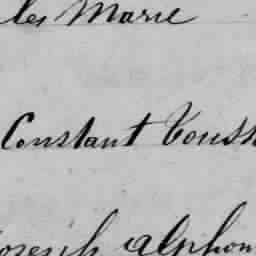 les Marie
Constant Touss
oseph alphon